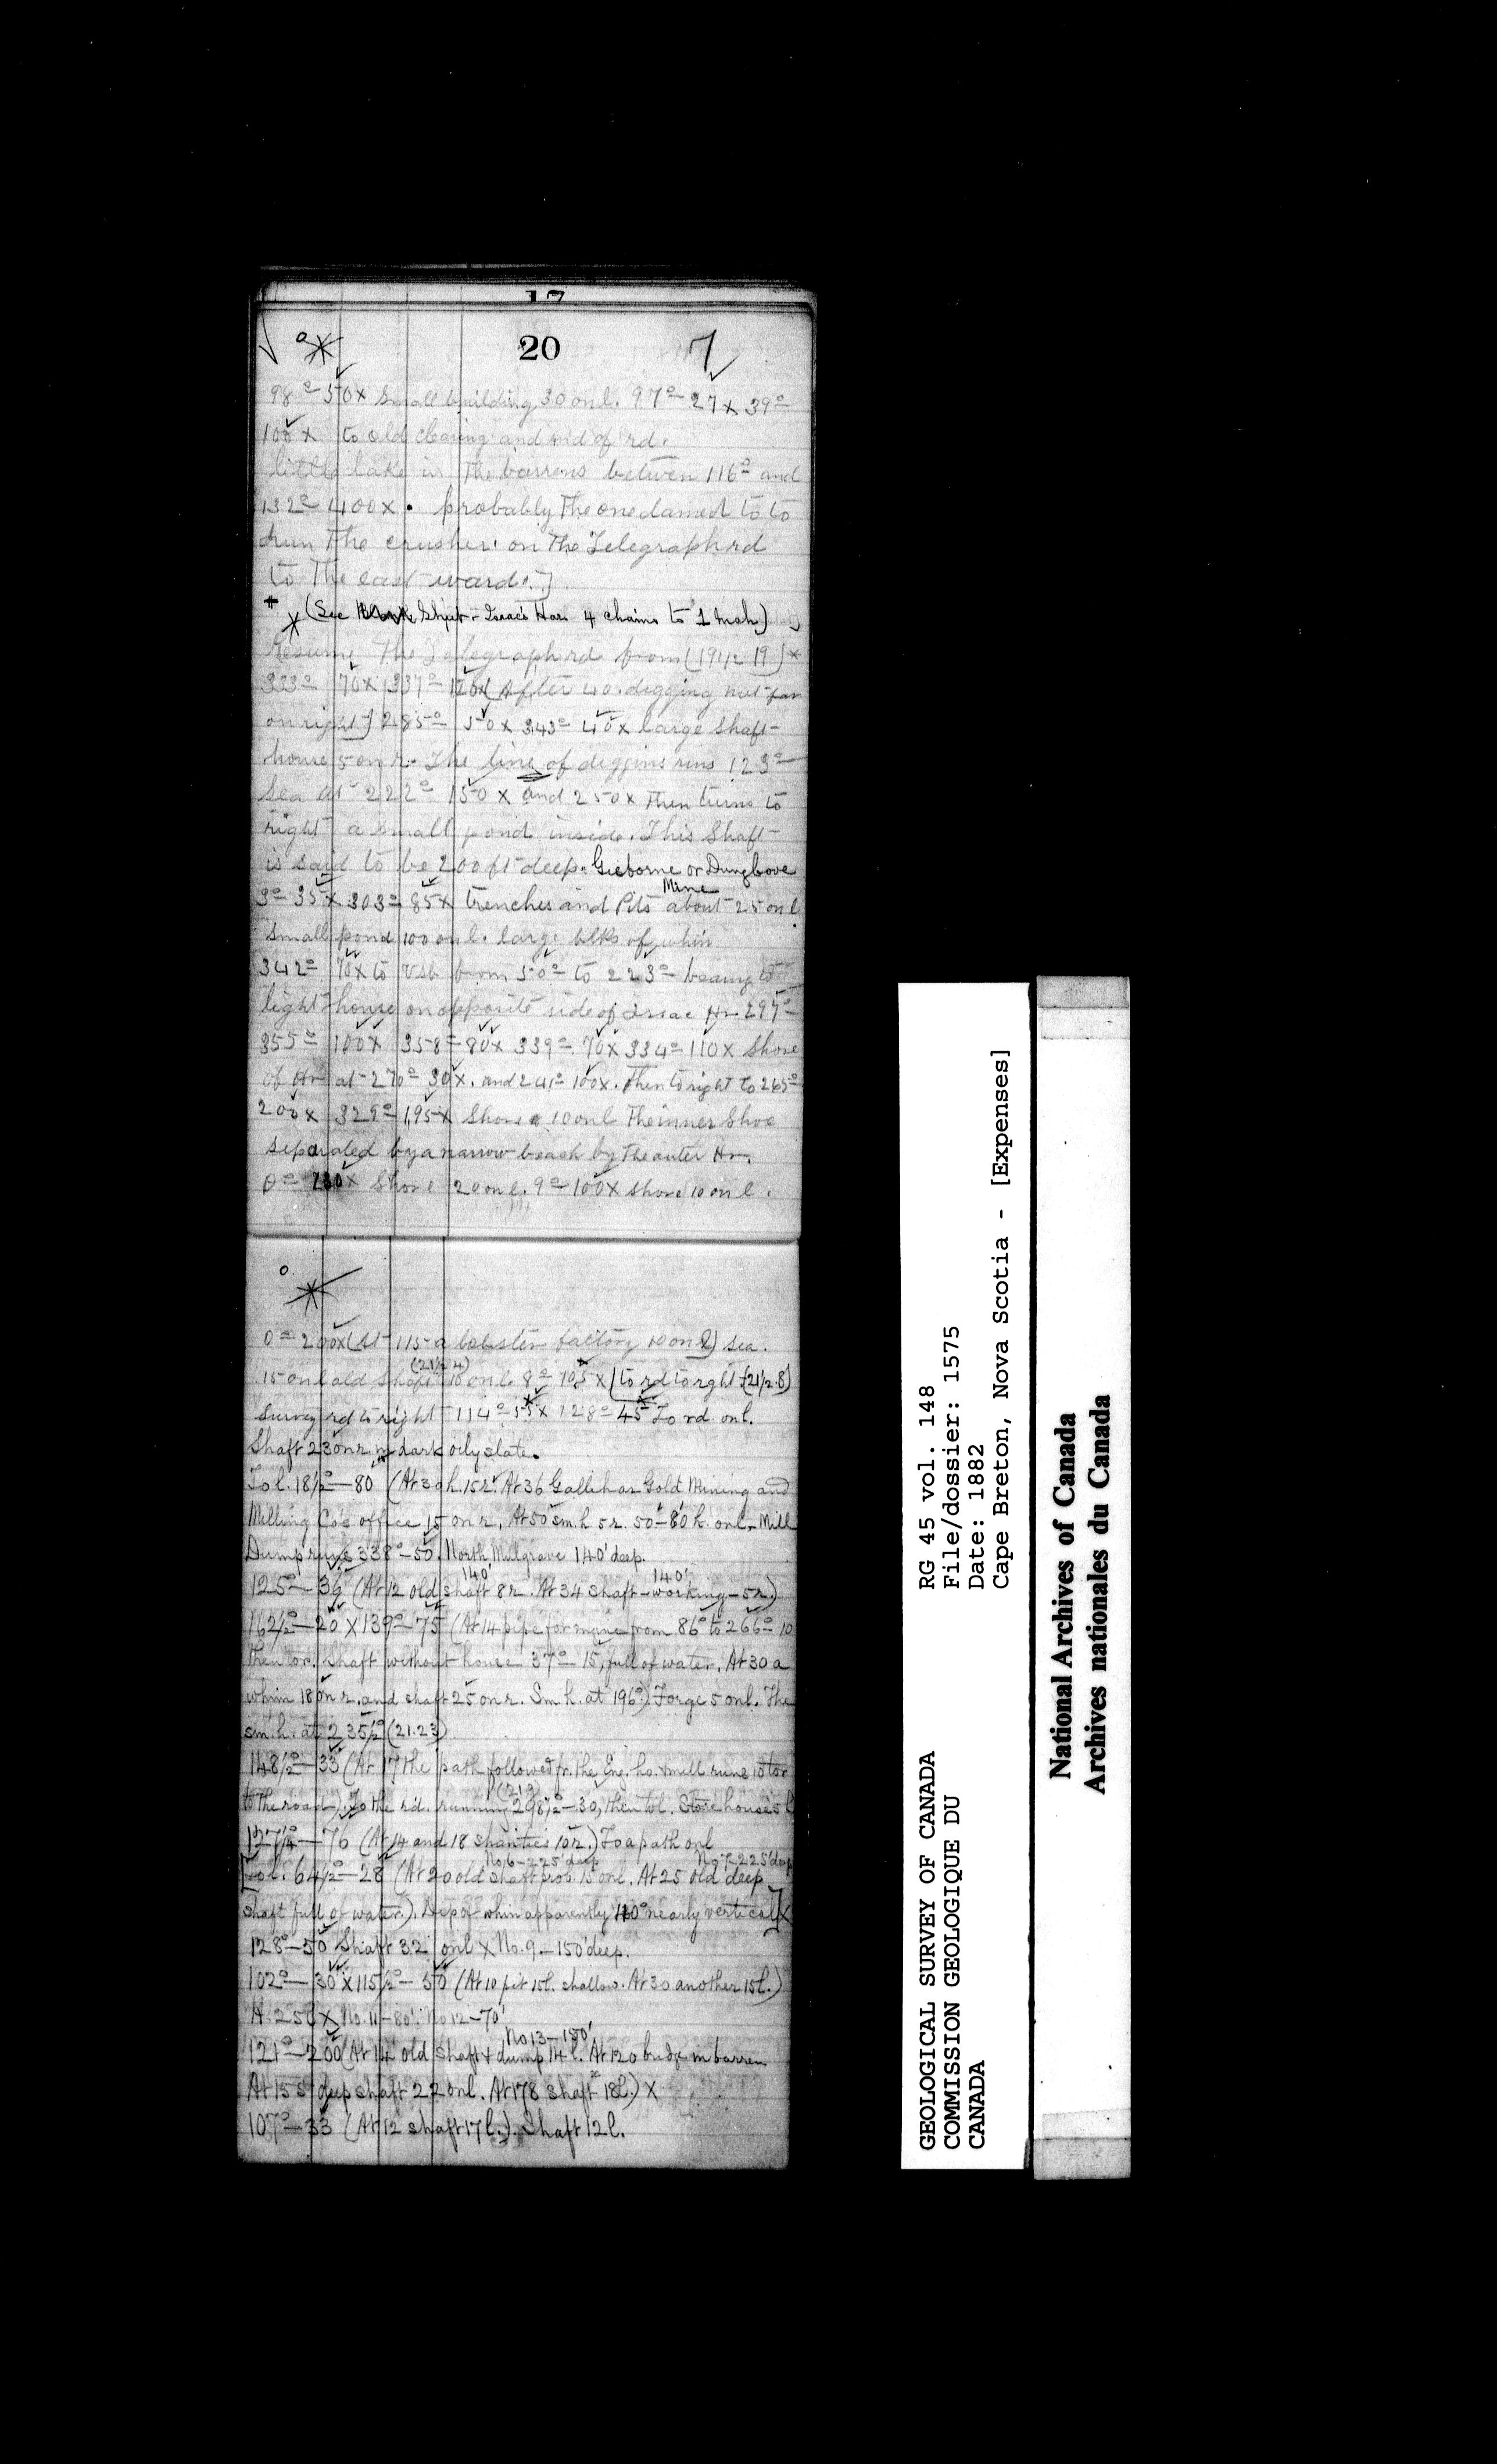 17
20
7
98° - 50 x small building 30 on l. 97° - 27 x 39° -
100 x to old clearing and end of rd.
little lake in the barrens between 116° and
132° 400 x . probably the one damed to to
run the crusher on the Telegraph rd
to the east ward.]
+ x (See Sheet - Isaac's Har. 4 chains to 1 Inch)
Resume the Telegraph rd from (19 1/2 19) x
333° 70 x 337° - 120 x (After 40 digging not far
on right] 285° 50 x 343° 40 x large shaft-
house 5 on r. The line of diggins runs 123° -
Sea at 222° 150 x and 250 x then turns to
right a small pond inside. This Shaft
is said to be 200 ft deep. Gisborne or Dung Cove
Mine
3° 35 x 303° 85 x trenches and Pits about 25 on l
small pond 100 on l. large blks of whin
342° 70 x to vsb from 50° to 223° bearing to
light house on opposite side of Isaac Hr 297°
355° 100 x 358° 80 x 339° - 70 x 334° - 110 x Shore
of Hr at 270° 30 x. and 241° 100 x. Then to right to 265°
200 x 329° 195 x Shore 10 on l The inner Shoe
separated by a narrow beach by the outer Hr.
0° - x Shore 20 on l. 9° 100 x shore 10 on l.
0° 200 x (at 115 a lobster factory 10 on l) sea.
(21 1/2 4)
15 on l old shaft 10 on l. 8° 105 x [to rd to rght (21 1/2.8)
Survey rd to right 114° 55 x 128° 45 To rd on l.
Shaft 23 on r. in dark oily slate.
To l. 18 1/2° - 80 (At 30 h. 15 r. At 36 Gallihar Gold Mining and
Milling Co's office 15 on r. At 50 sm. h 5 r. 50 - 80 h. on l. Mill
Dump runs 338° - 50. North Mulgrave 140' deep.
140' 140'
125° - 36 (At 12 old shaft 8 r. At 34 shaft - working - 5 r.)
162 1/2° - 20 x 139° - 75 (At 14 pipe for mine from 86° to 266° 10
then to r. Shaft without house 37° - 15, full of water. At 30 a
whim 18 on r. and shaft 25 on r. Sm. h. at 196°) Forge 5 on l. The
sm. h. at 235 1/2° (21.23)
148 1/2° - 33 (At 17 the path followed fr. the Eng. ho. & mill runs 10 to r
(21.9)
to the road). To the rd. running 298 1/2° - 30, then to l. Storehouse 5 l
127 1/4° - 70 (At 14 and 18 shanties 10 r.) To a path on l
No 6 - 225' deep No 7 225' deep
[To l. 64 1/2° - 28 (At 20 old shaft prob. 15 on l. At 25 old deep
shaft full of water.). Dip of whin apparently 110° nearly vertical] X
128° - 50 Shaft 32 on l X No. 9 - 150' deep.
102° - 30 x 115 1/2° - 50 (At 10 pit 15 l. shallow. At 30 another 15 l.)
H. 25 l X No. 11 - 80'. No 12 - 70'
No 13 - 150'
121° - 200 (At 14 old shaft & dump 14 l. At 120 bridge in barren
At 155 deep shaft 22 on l. At 178 shaft 18 l.) X
107° - 33 (At 12 shaft 17 l.). Shaft 12 l.
GEOLOGICAL SURVEY OF CANADA
COMMISSION GEOLOGIQUE DU
CANADA
RG 45 vol. 148
File/dossier: 1575
Date: 1882
Cape Breton, Nova Scotia - [Expenses]
National Archives of Canada
Archives nationales du Canada